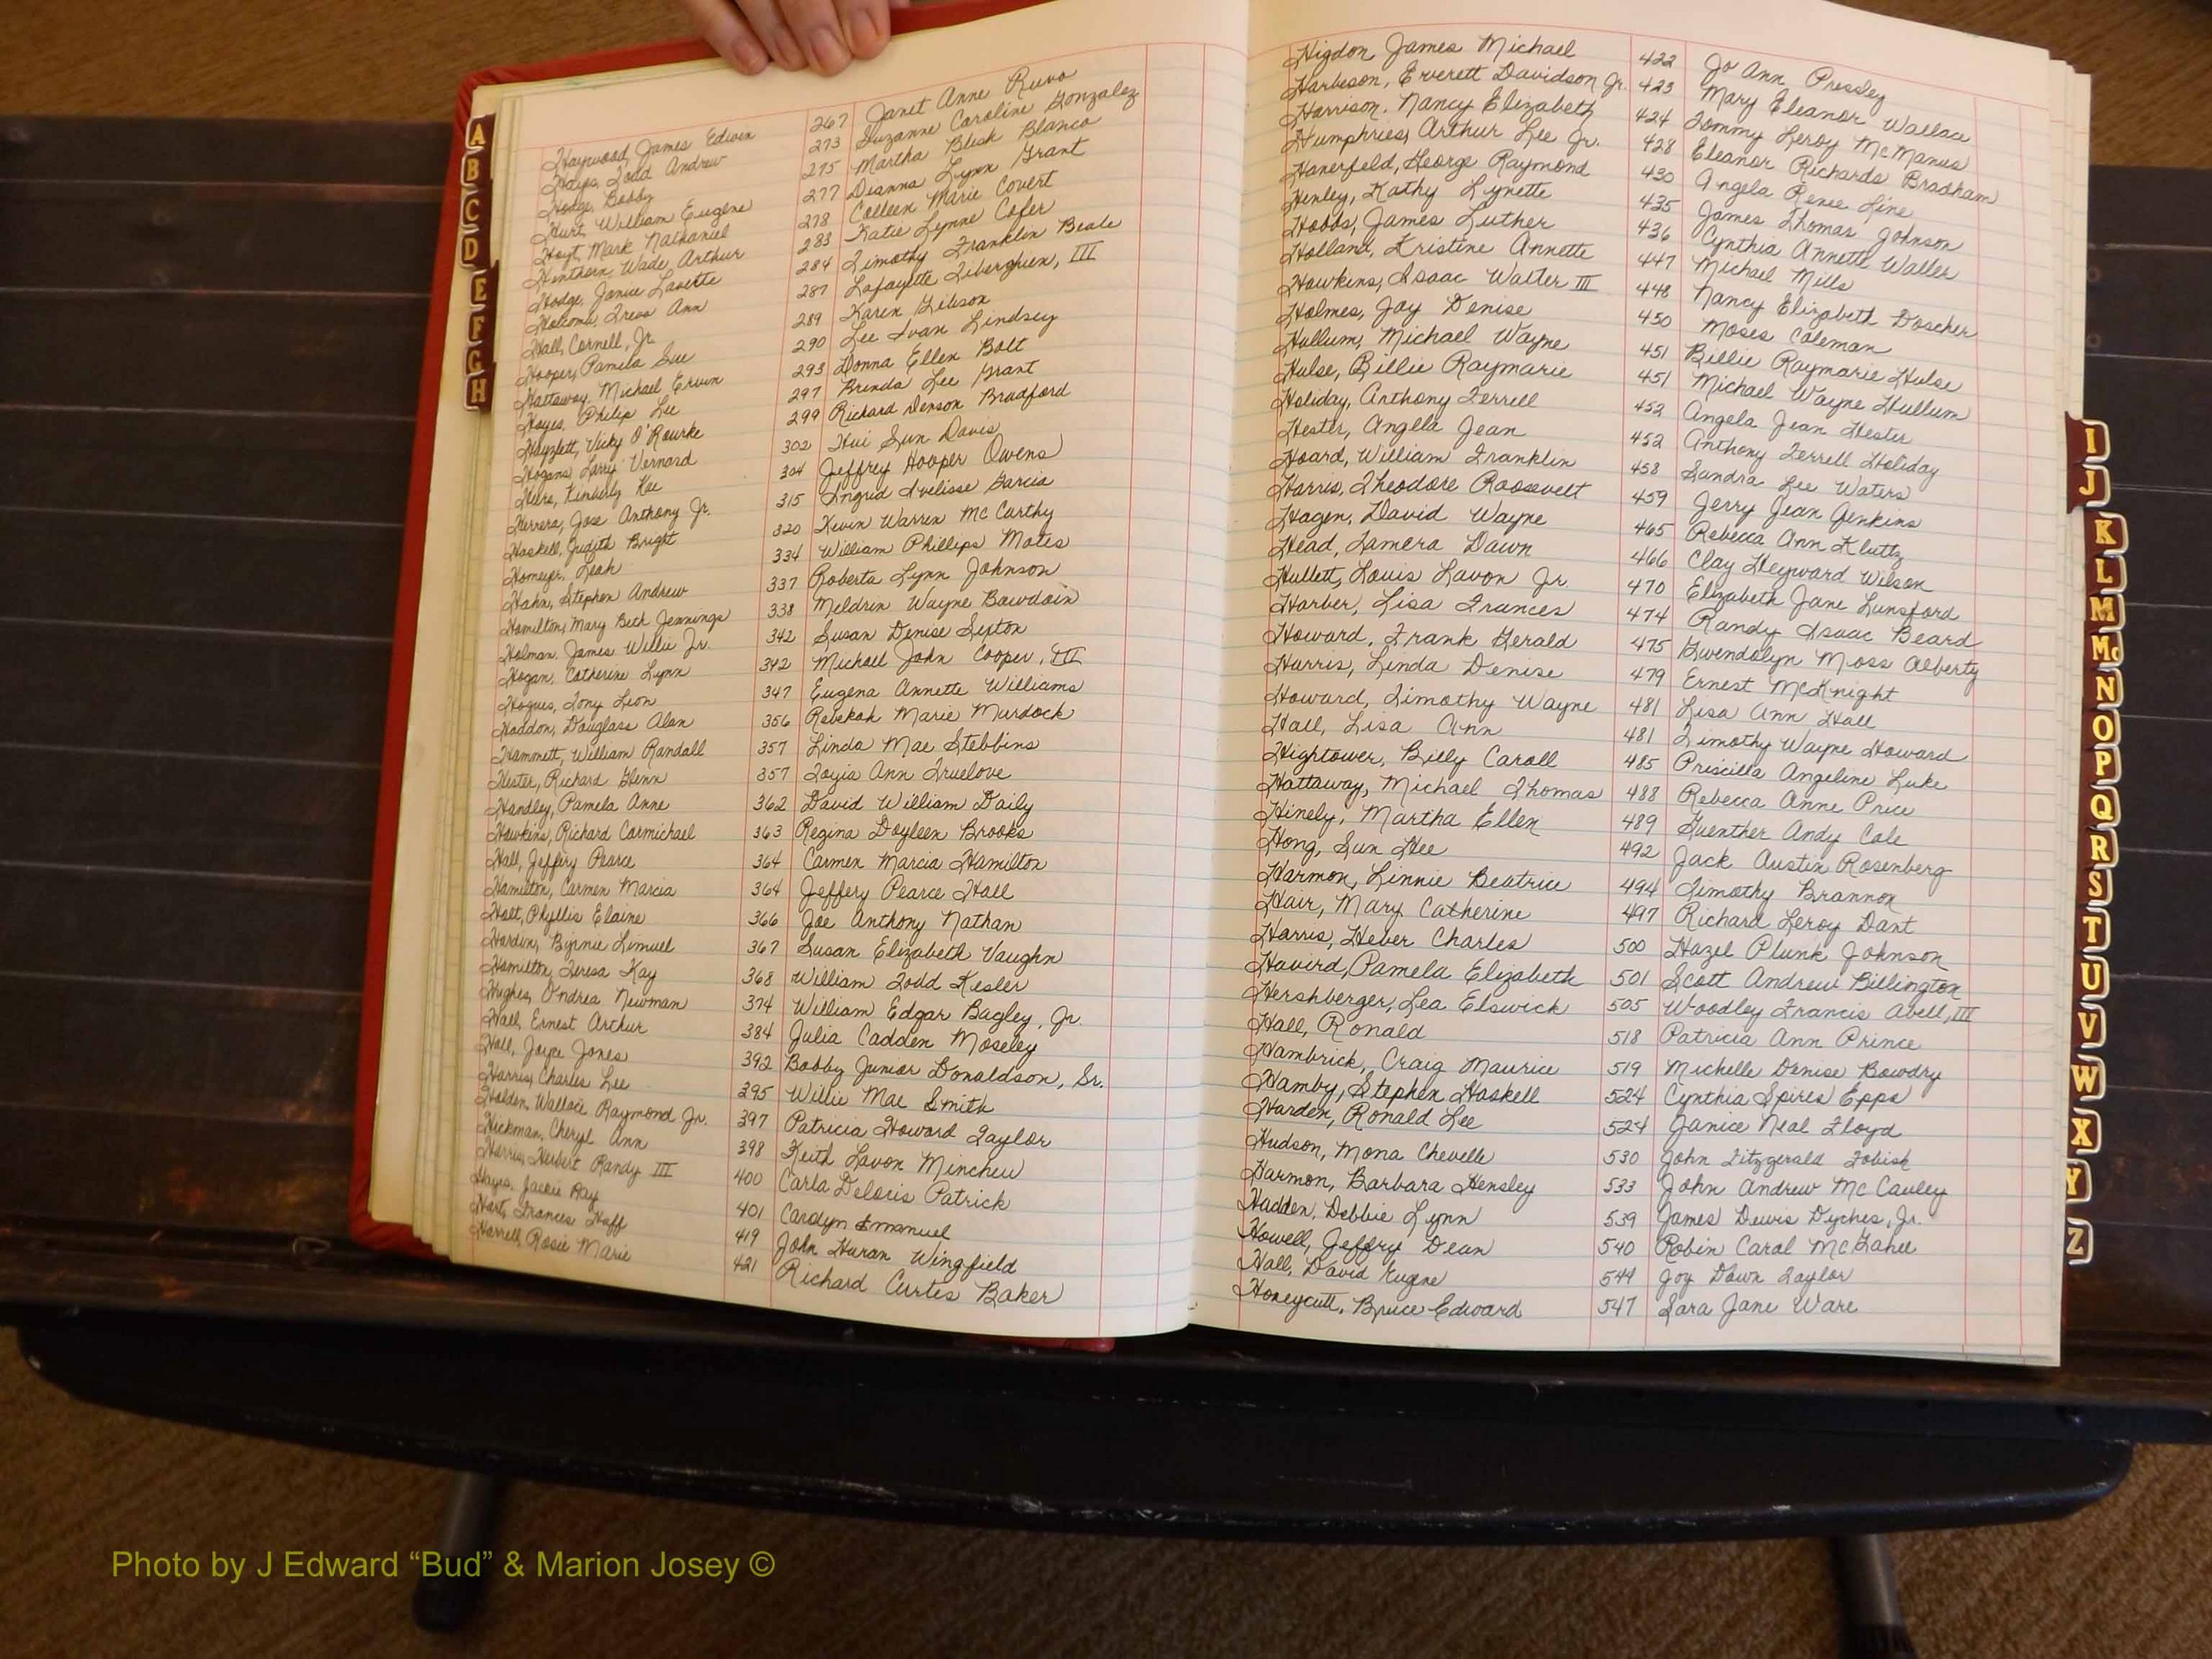 Haywood, James Edwin 267 Janet Anne Ruvo
Hays, Todd Andrew 273 Suzanne Caroline Gonzalez
Hodge, Bobby 275 Martha Blish Blanco
Hurt, William Eugene 277 Dianna Lynn Grant
Hoyt, Mark Nathaniel 278 Colleen Marie Covert
Hinthorn, Wade Arthur 283 Katie Lynne Cofer
Hodge, Janice Lavette 284 Timothy Franklin Beale
Holcomb, Tresa Ann 287 Lafayette Tiberghien, III
Hall, Cornell, Jr. 289 Karen Gibson
Hooper, Pamela Sue 290 Lee Ivan Lindsey
Hattaway, Michael Ervin 293 Donna Ellen Bolt
Hayes, Philip Lee 297 Brenda Lee Grant
Hayzlett, Vicky O'Rourke 299 Richard Denson Bradford
Hogans, Larry Vernard 302 Hui Sun Davis
Heers, Kimberly Kae 304 Jeffrey Hooper Owens
Herrera, Jose Anthony Jr. 315 Ingrid Ivelisse Garcia
Haskell, Judith Bright 320 Kevin Warren McCarthy
Homeyer, Leah 334 William Phillips Mates
Hahn, Stephen Andrew 337 Roberta Lynn Johnson
Hamilton, Mary Beth Jennings 338 Meldrin Wayne Bawdoin
Holman, James Willie Jr. 342 Susan Denise Sexton
Hogan, Catherine Lynn 342 Michael John Cooper, III
Hogues, Tony Leon 347 Eugena Annette Williams
Haddon, Douglass Alan 356 Rebekah Marie Murdock
Hammett, William Randall 357 Linda Mae Stebbins
Hester, Richard Glenn 357 Toyia Ann Truelove
Handley, Pamela Anne 362 David William Daily
Hawkins, Richard Carmichael 363 Regina Doyleen Brooks
Hall, Jeffery Pearce 364 Carmen Marcia Hamilton
Hamilton, Carmen Marcia 364 Jeffery Pearce Hall
Holt, Phyllis Elaine 366 Joe Anthony Nathan
Hardin, Binnie Limuel 367 Susan Elizabeth Vaughn
Hamilton, Teresa Kay 368 William Todd Kesler
Hughes, O'ndrea Newman 374 William Edgar Bagley, Jr.
Hall, Ernest Arthur 384 Julia Cadden Moseley
Hall, Joyce Jones 392 Bobby Junior Donaldson, Sr.
Harris, Charles Lee 395 Willie Mae Smith
Holden, Wallace Raymond Jr. 397 Patricia Howard Taylor
Hickman, Cheryl Ann 398 Keith Lavon Minchew
Harris, Herbert Randy III 400 Carla Deloris Patrick
Hayes, Jackie Ray 401 Carolyn Emanuel
Hart, Frances Huff 419 John Huran Wingfield
Harrell, Rosie Marie 421 Richard Curtis Baker
Higdon, James Michael 422 Jo Ann Pressley
Harbeson, Everett Davidson Jr. 423 Mary Eleanor Wallace
Harrison, Nancy Elizabeth 424 Tommy Leroy McManus
Humphries, Arthur Lee Jr. 428 Eleanor Richards Bradham
Hanerfeld, George Raymond 430 Angela Renee Line
Henley, Kathy Lynette 435 James Thomas Johnson
Hobbs, James Luther 436 Cynthia Annette Waller
Holland, Kristine Annette 447 Michael Mills
Hawkins, Isaac Walter III 448 Nancy Elizabeth Doscher
Holmes, Jay Denise 450 Moses Coleman
Hullum, Michael Wayne 451 Billie Raymarie Hulse
Hulse, Billie Raymarie 451 Michael Wayne Hullum
Holiday, Anthony Terrell 452 Angela Jean Hester
Hester, Angela Jean 452 Anthony Terrell Holiday
Hoard, William Franklin 458 Sandra Lee Waters
Harris, Theodore Roosevelt 459 Jerry Jean Jenkins
Hagen, David Wayne 465 Rebecca Ann Kluttz
Head, Tamera Dawn 466 Clay Heyward Wilson
Hullett, Louis Lavon Jr. 470 Elizabeth Jane Lunsford
Harber, Lisa Frances 474 Randy Isaac Beard
Howard, Frank Gerald 475 Gwendolyn Moss Alberty
Harris, Linda Denise 479 Ernest McKnight
Howard, Timothy Wayne 481 Lisa Ann Hall
Hall, Lisa Ann 481 Timothy Wayne Howard
Hightower, Billy Caroll 485 Priscilla Angeline Luke
Hattaway, Michael Thomas 488 Rebecca Anne Price
Hinely, Martha Ellen 489 Guenther Andy Cole
Hong, Sun Hee 492 Jack Austin Rosenberg
Harmon, Linnie Beatrice 494 Timothy Brannon
Hair, Mary Catherine 497 Richard Leroy Dant
Harris, Heber Charles 500 Hazel Plunk Johnson
Havird, Pamela Elizabeth 501 Scott Andrew Billington
Hershberger, Lea Elswick 505 Woodley Francis Abell, III
Hall, Ronald 518 Patricia Ann Prince
Hambrick, Craig Maurice 519 Michelle Denise Bowdry
Hamby, Stephen Haskell 524 Cynthia Spires Epps
Harden, Ronald Lee 524 Janice Neal Floyd
Hudson, Mona Chevelle 530 John Fitzgerald Tobish
Harmon, Barbara Hensley 533 John Andrew McCauley
Hadden, Debbie Lynn 539 James Dewis Dyches, Jr.
Howell, Jeffry Dean 540 Robin Carol McGahee
Hall, David Eugene 544 Joy Dawn Taylor
Honeycutt, Bruce Edward 547 Sara Jane Ware
A
B
C
D
E
F
G
H
I
J
K
L
M
Mc
N
O
P
Q
R
S
T
U
V
W
X
Y
Z
Photo by J Edward “Bud” & Marion Josey ©